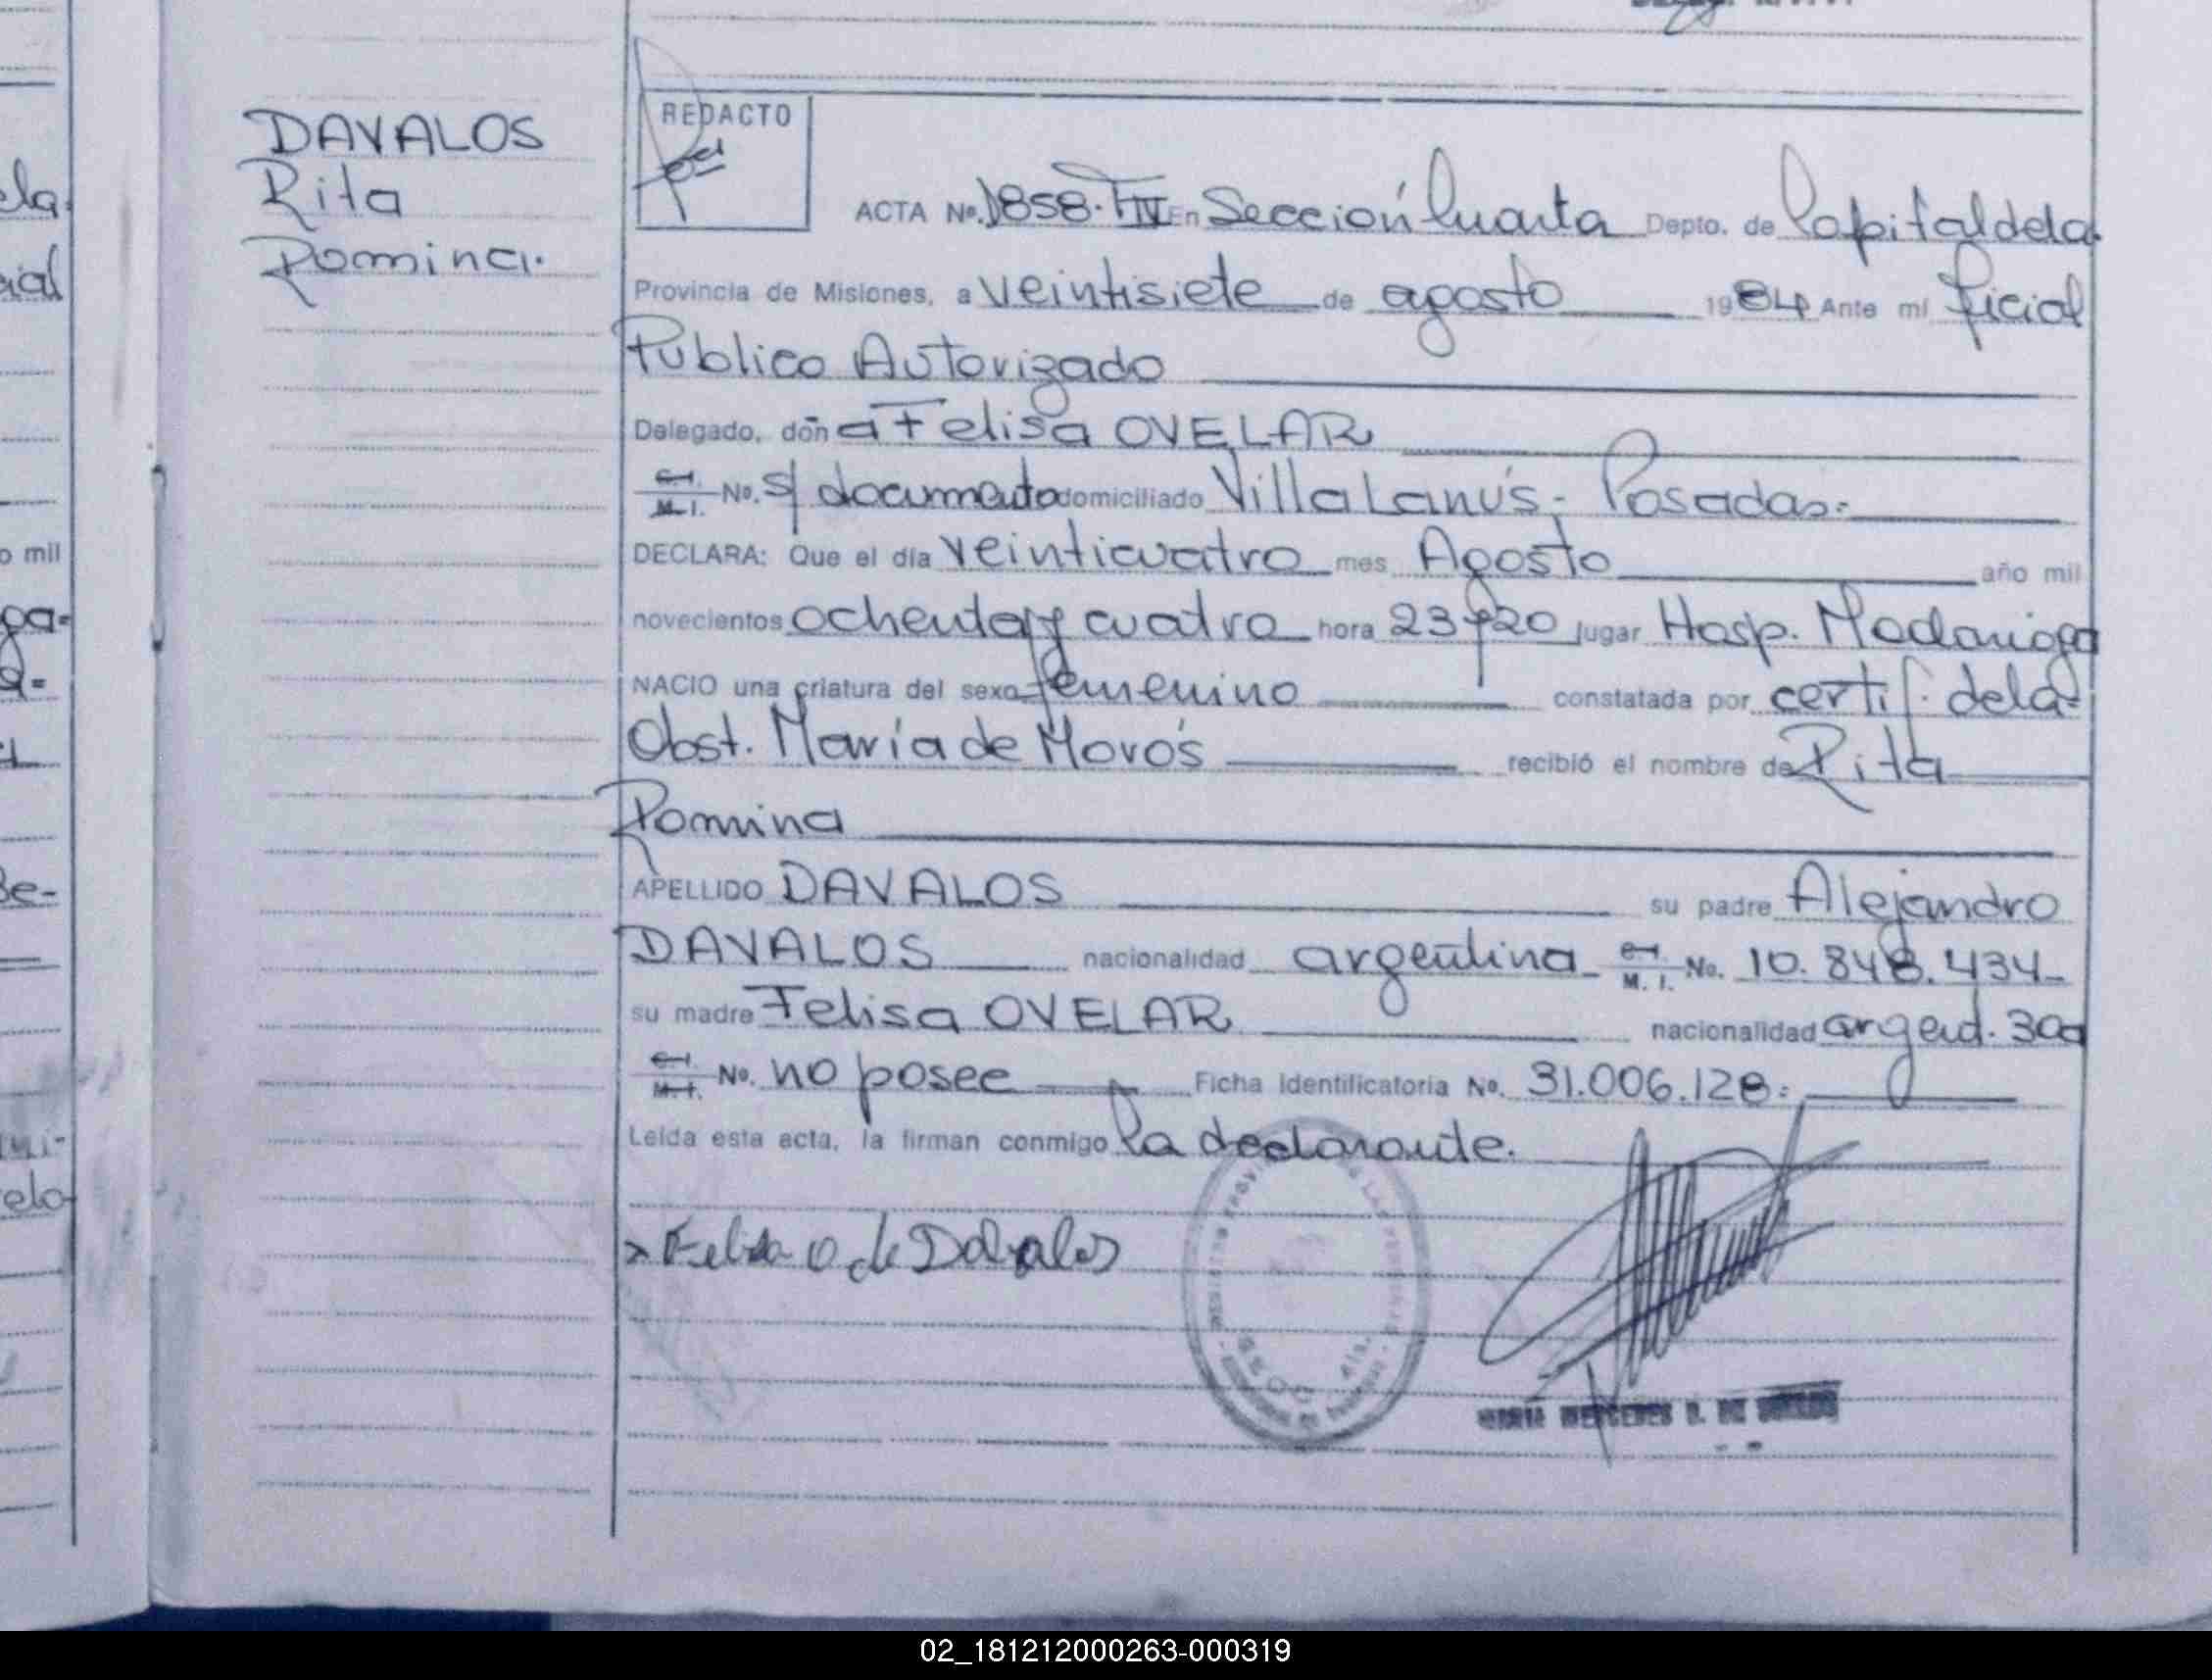 DAVALOS
Rita
Romina.
REDACTO
ACTA No. 1858. TIV En Sección Cuarta Depto. de Capital de la
Provincia de Misiones, a veintisiete de agosto 1984 Ante mí ficial
Publico Autorizado
Delegado, don a Felisa OVELAR
C.I. M.I. No. s/ documento domiciliado Villa Lanús - Posadas.-
DECLARA: Que el día veinticuatro mes Agosto año mil
novecientos ochenta y cuatro hora 23 y 20 lugar Hosp. Madariaga
NACIO una criatura del sexo femenino constatada por certif. de la-
Obst. María de Morós recibió el nombre de Rita
Romina
APELLIDO DAVALOS su padre Alejandro
DAVALOS nacionalidad argentina C.I. M. I. No. 10.848.434-
su madre Felisa OVELAR nacionalidad argent. 30a
C.I. M.I. No. no posee Ficha Identificatoria No. 31.006.128.-
Leída esta acta, la firman conmigo la declarante.
x Felisa O de Davalos
MARIA MERCEDES D. DE
ela
cial
o mil
ga=
a=
Be-
elo
02_181212000263-000319